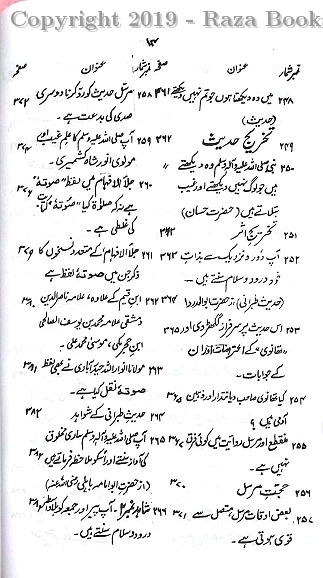 Copyright 2019 - Raza Book
۱۳
نمبر شمار عنوان صفحہ
۲۴۸ میں وہ دیکھتا ہوں جو تم نہیں دیکھتے ۳۶۱
(حدیث)
۲۴۹ تخریج حدیث ۳۶۲
۲۵۰ نبی صلی اللہ علیہ وآلہ وسلم وہ دیکھتے
ہیں جو لوگ نہیں دیکھتے اور غیب
بتلاتے ہیں (حضرت حسان)
۲۵۱ تخریج اثر
۲۵۲ آپ دور و نزدیک سے بذات ۳۶۳
خود درود و سلام سنتے ہیں۔
(حدیث طبرانی) از حضرت ابوالدرداء
۲۵۳ اس حدیث پر سرفراز گکھڑوی اور ۳۶۵
تھانوی کے اعتراضات اور ان
کے جوابات۔
۲۵۴ کیا تھانوی صاحب دیانتدار اور ذہین
آدمی ہیں ؟
۲۵۵ منقطع اور مرسل روایت میں کوئی فرق
نہیں ہے۔
۲۵۶ حجیت مرسل ۳۷۰
۲۵۷ بعض اوقات مرسل، متصل سے ۳۷۱
قوی ہوتی ہے۔
نمبر شمار عنوان صفحہ
۲۵۸ مرسل حدیث کو رد کرنا دوسری ۳۷۲
صدی کی بدعت ہے۔
۲۵۹ آپ صلی اللہ علیہ وسلم کا علم غیب اور
مولوی انور شاہ کشمیری۔
۲۶۰ جلاء الافہام میں لفظ صوتہ
ہے نہ کہ صلوٰۃ کیا "صوتہ" کتابت
کی غلطی ہے۔
۲۶۱ جلاء الافہام کے متعدد نسخوں کا
ذکر جن میں صوتہ لفظ ہے
۲۶۲ ابن قیم کے علاوہ، علامہ ناصر الدین
دمشقی علامہ محمد بن یوسف الصالحی
ابن حجر مکی، موسیٰ محمد علی۔
مولانا انوار اللہ حیدرآبادی نے بھی لفظ
صوتہ نقل کیا ہے۔
حدیث طبرانی کے شواہد ۳۸۲
۲۶۵ آپ صلی اللہ علیہ وآلہ وسلم ساری مخلوق
کی آواز سنتے اور اسکو ملاحظہ فرماتے ہیں
(از حضرت ابوامامہ باہلی رضی اللہ عنہ)
۲۶۶ شاہد نمبر۲۔ آپ پیر اور جمعہ کو بلاواسطہ
درود و سلام سنتے ہیں۔